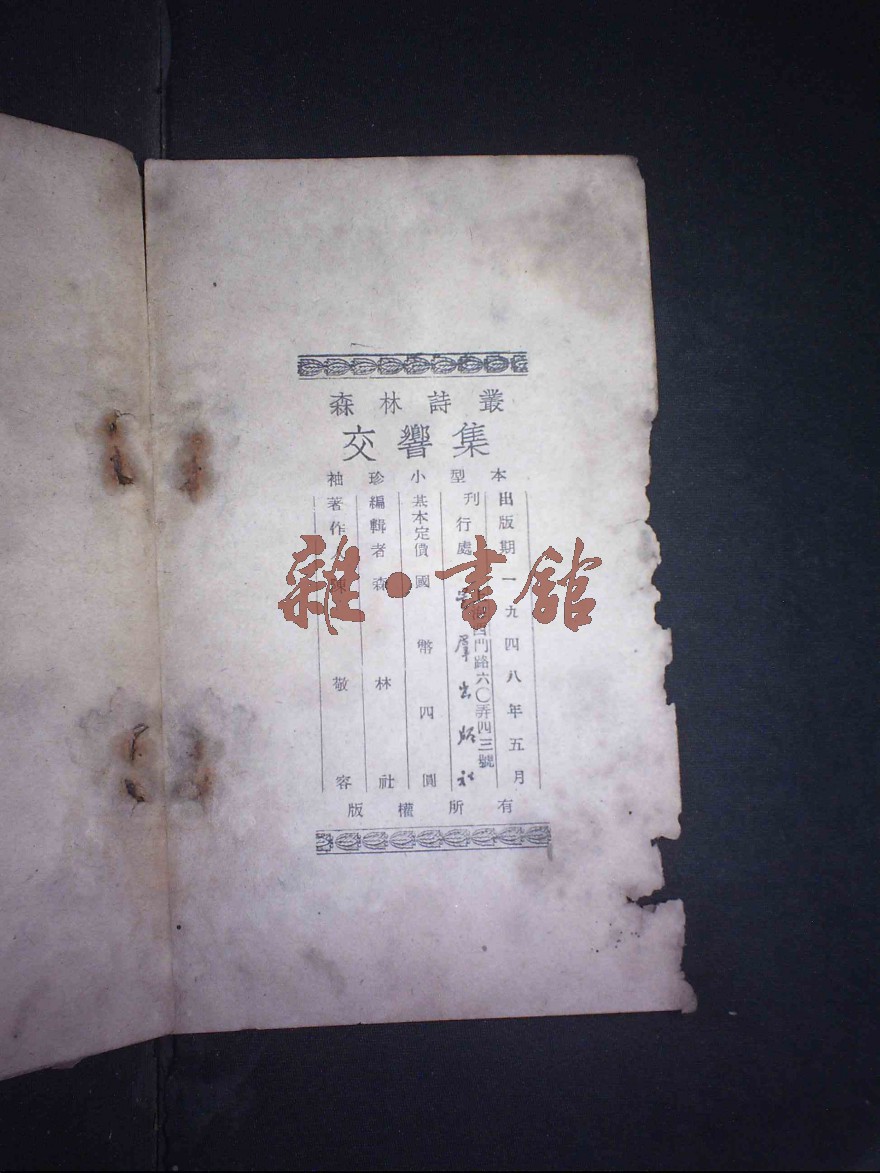 森林詩叢
交響集
袖珍小型本
著作人 陳敬容
編輯者 森林社
基本定價 國幣四圓
刊行處 星群出版社
上海西門路六〇弄四三號
出版期 一九四八年五月
版權所有
雜·書館